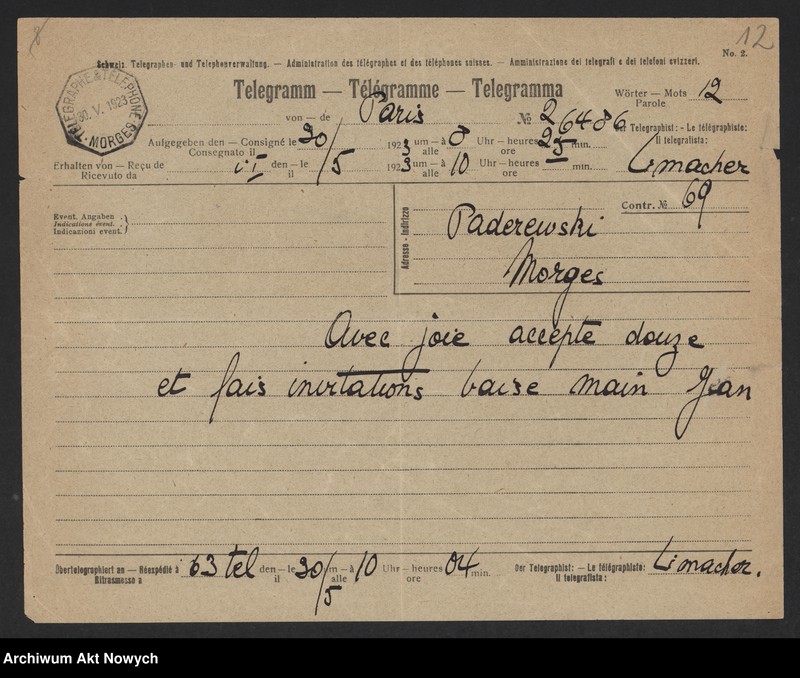 12
No. 2.
Schweiz. Telegraphen- und Telephonverwaltung. — Administration des télégraphes et des téléphones suisses. — Amministrazione dei telegrafi e dei telefoni svizzeri.
Telegramm — Télégramme — Telegramma
Wörter — Mots 12
Parole
TELEGRAPHE & TELEPHONE
30. V. 1923
MORGES
von — de Paris № 26486
Der Telegraphist: - Le télégraphiste:
Il telegrafista:
Aufgegeben den — Consigné le 30/5 1923 um — à 8 Uhr — heures 25 min.
Consegnato il alle ore
Erhalten von — Reçu de den — le 1923 um — à 10 Uhr — heures min.
Ricevuto da il alle ore
Limacher
Contr. № 69
Event. Angaben
Indications évent.
Indicazioni event.
Adresse - Indirizzo
Paderewski
Morges
Avec joie accepte douze
et fais invitations baise main Jean
Übertelegraphiert an — Réexpédié à 63 tel den — le 30/5 um — à 10 Uhr — heures 04 min.
Ritrasmesso a il alle ore
Der Telegraphist: — Le télégraphiste: Limacher.
Il telegrafista:
Archiwum Akt Nowych